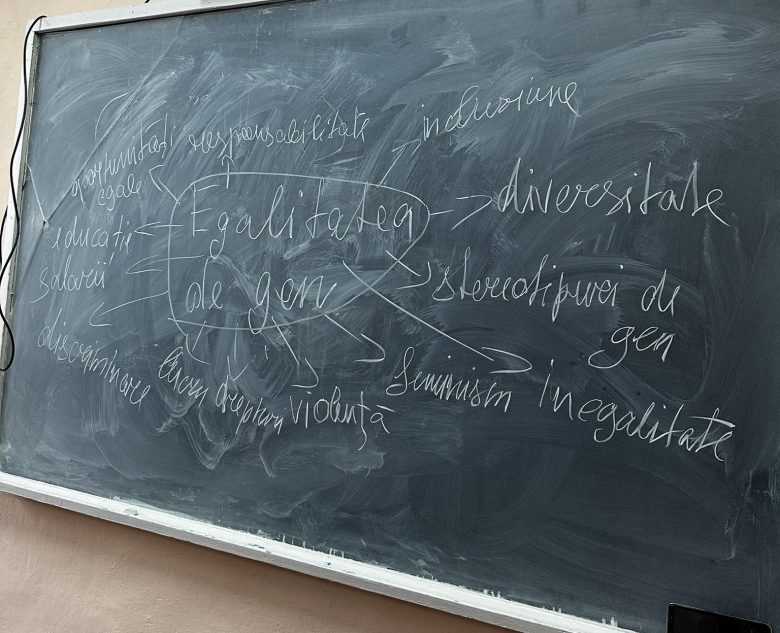 incluziune
responsabilitate
oportunități
egale
diversitate
Egalitatea
de gen
educație
salarii
stereotipuri de
gen
discriminare
drepturi
violență
feminism
inegalitate